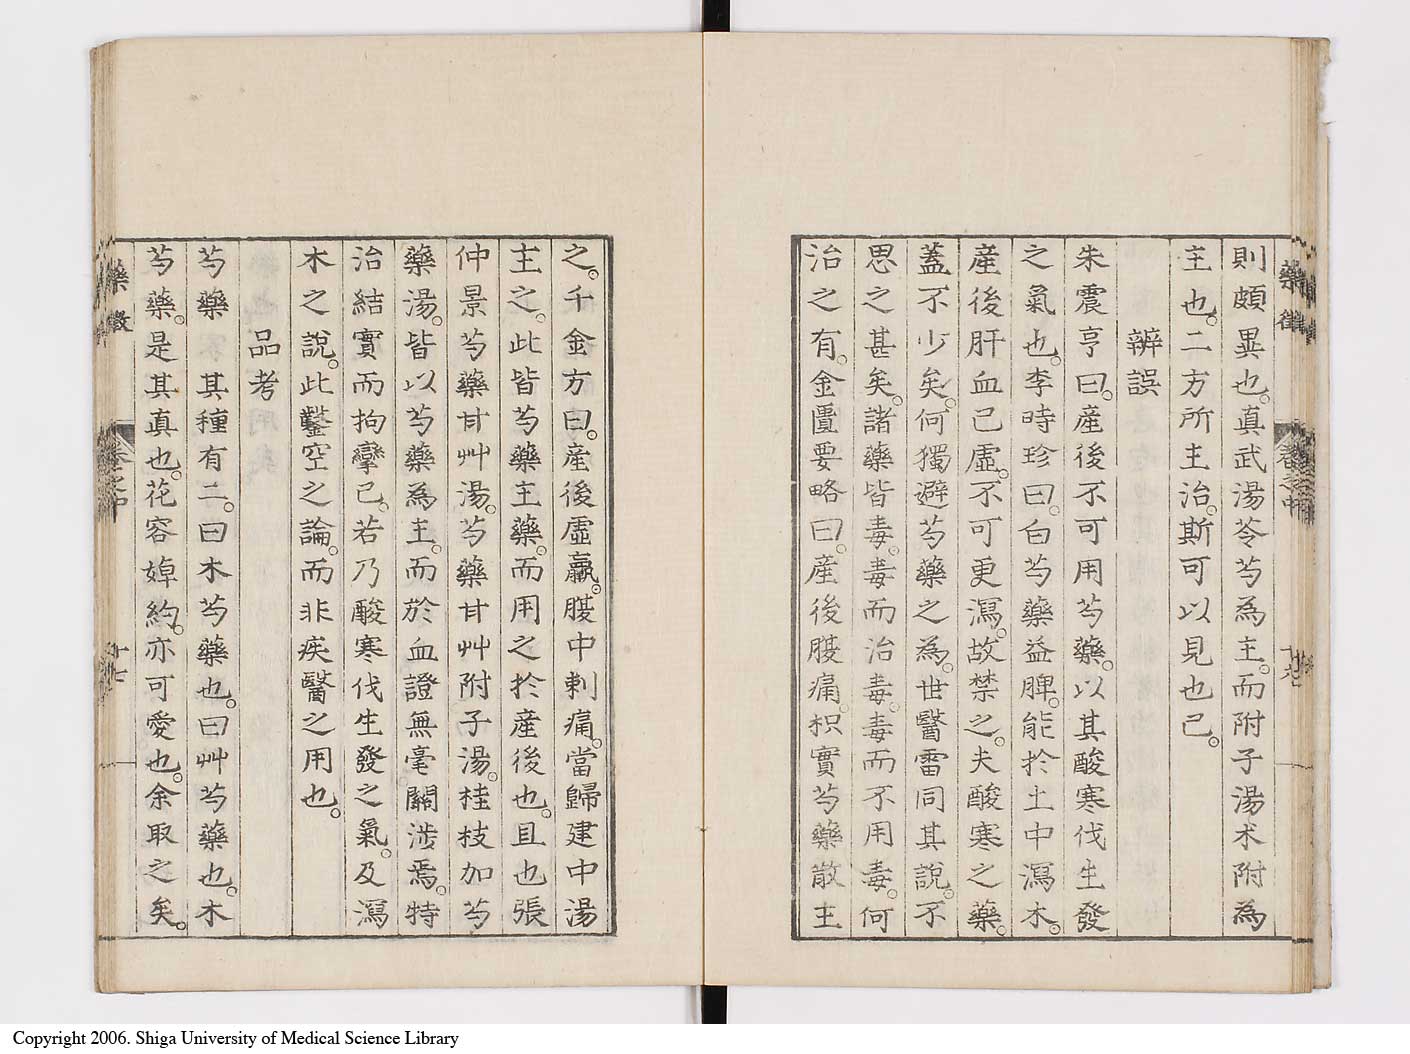 則頗異也。真武湯苓芍為主。而附子湯朮附為
主也。二方所主治。斯可以見也已。
辨誤
朱震亨曰。產後不可用芍藥。以其酸寒伐生發
之氣也。李時珍曰。白芍藥益脾。能於土中瀉木。
產後肝血已虛。不可更瀉。故禁之。夫酸寒之藥。
蓋不少矣。何獨避芍藥之為。世醫雷同其說。不
思之甚矣。諸藥皆毒。毒而治毒。毒而不用毒。何
治之有。金匱要略曰。產後腹痛。枳實芍藥散主
之。千金方曰。產後虛羸。腹中刺痛。當歸建中湯
主之。此皆芍藥主藥。而用之於產後也。且也張
仲景芍藥甘艸湯。芍藥甘艸附子湯。桂枝加芍
藥湯。皆以芍藥為主。而於血證無毫關涉焉。特
治結實而拘攣已。若乃酸寒伐生發之氣。及瀉
木之說。此鑿空之論。而非疾醫之用也。
品考
芍藥 其種有二。曰木芍藥也。曰艸芍藥也。木
芍藥。是其真也。花容婥約。亦可愛也。余取之矣。
藥徵
卷之中
十六
藥徵
卷之中
十七
Copyright 2006. Shiga University of Medical Science Library